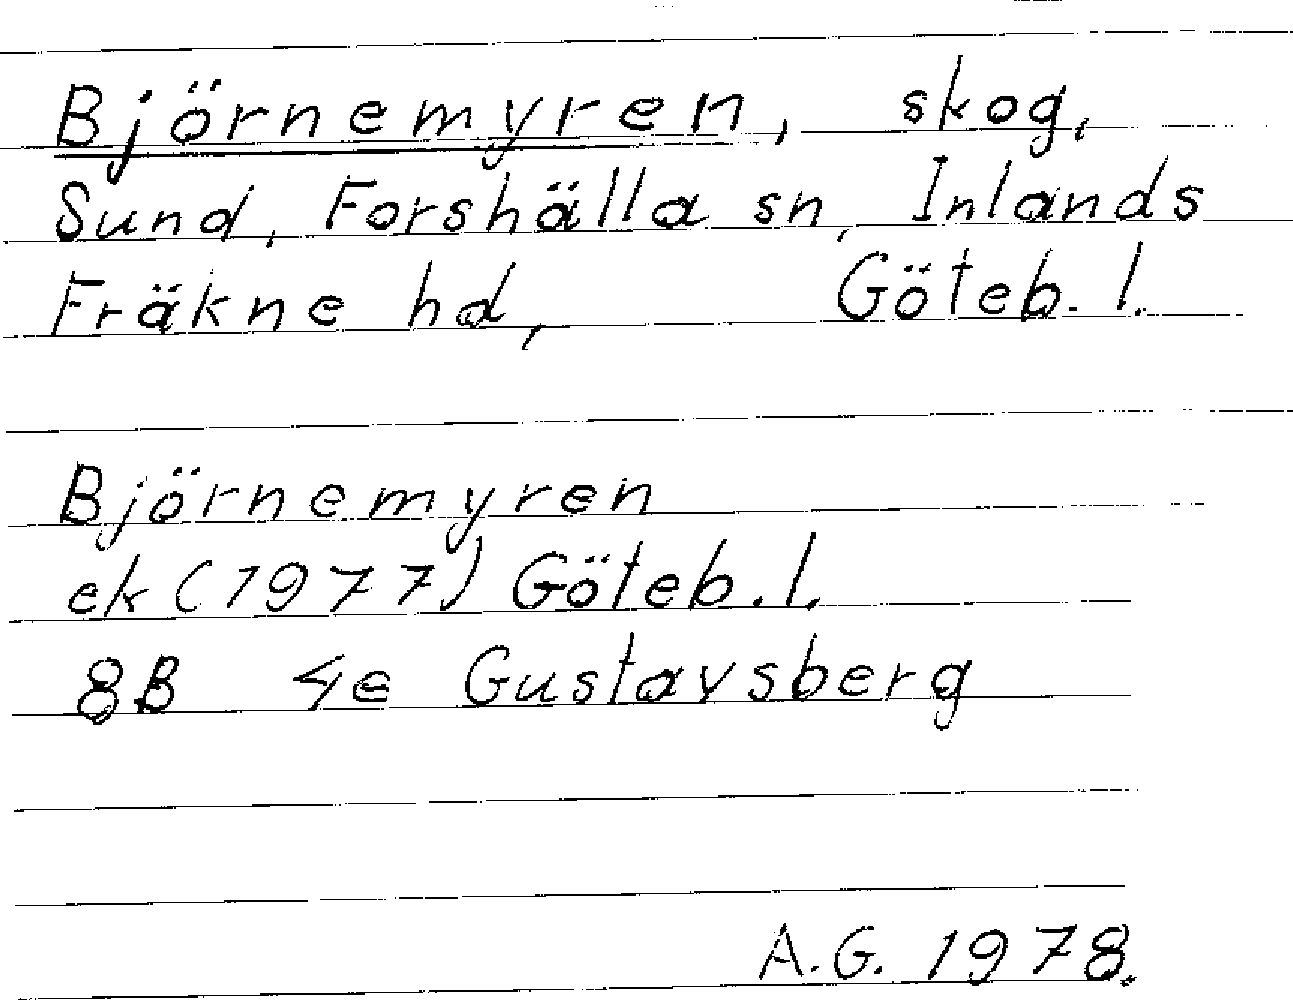 Björnemyren, skog,
Sund, Forshälla sn, Inlands
Fräkne hd, Göteb. l.
Björnemyren
ek (1977) Göteb. l.
8B 4e Gustavsberg
A.G. 1978.